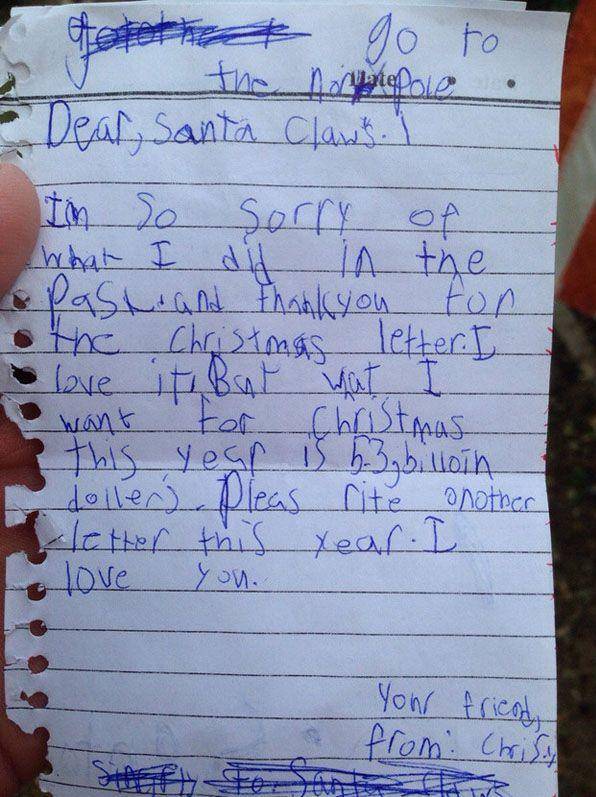 go to
the nor pole
Date
Dear, Santa Claws.
Im so sorry of
what I did in the
past. and thankyou for
the Christmas letter. I
love it, But wat I
want for Christmas
this year is 53,billoin
dollers. Pleas rite onother
letter this year. I
love you.
Your friend,
from: Chris
to Santa Claws